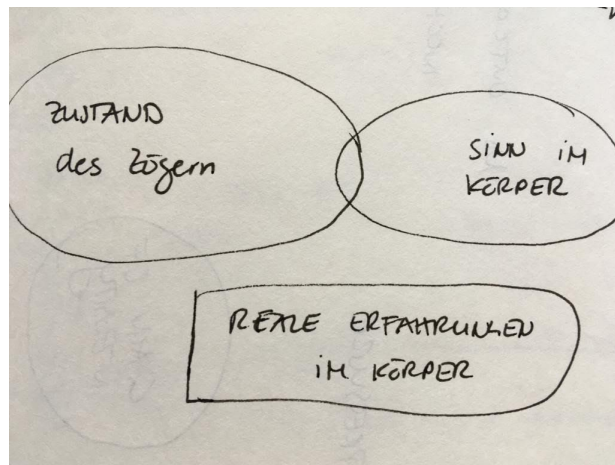 ZUSTAND
des Zögern
SINN IM
KÖRPER
REALE ERFAHRUNGEN
IM KÖRPER